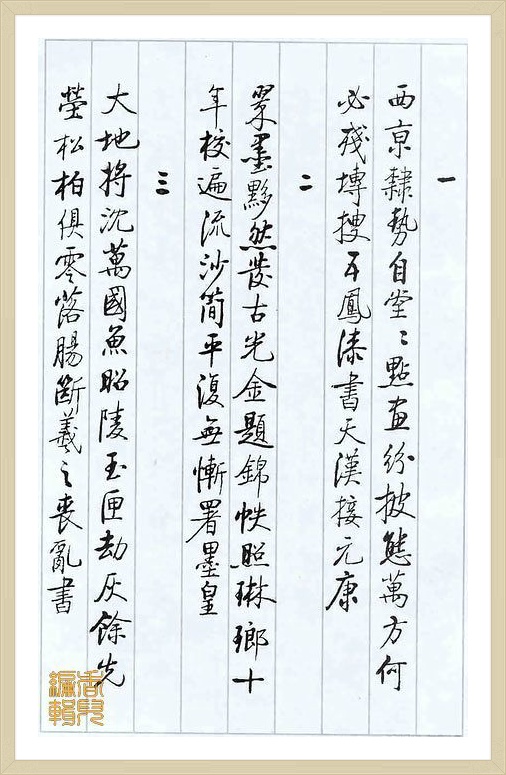 一
西京隸勢自堂〻點画紛披態萬方何
必殘塼搜五鳳漆書天漢接元康
二
翠墨黟然發古光金題錦帙照琳瑯十
年校遍流沙簡平復無慚署墨皇
三
大地將沈萬國魚昭陵玉匣劫灰餘先
塋松柏俱零落腸斷羲之喪亂書
香兒
編輯